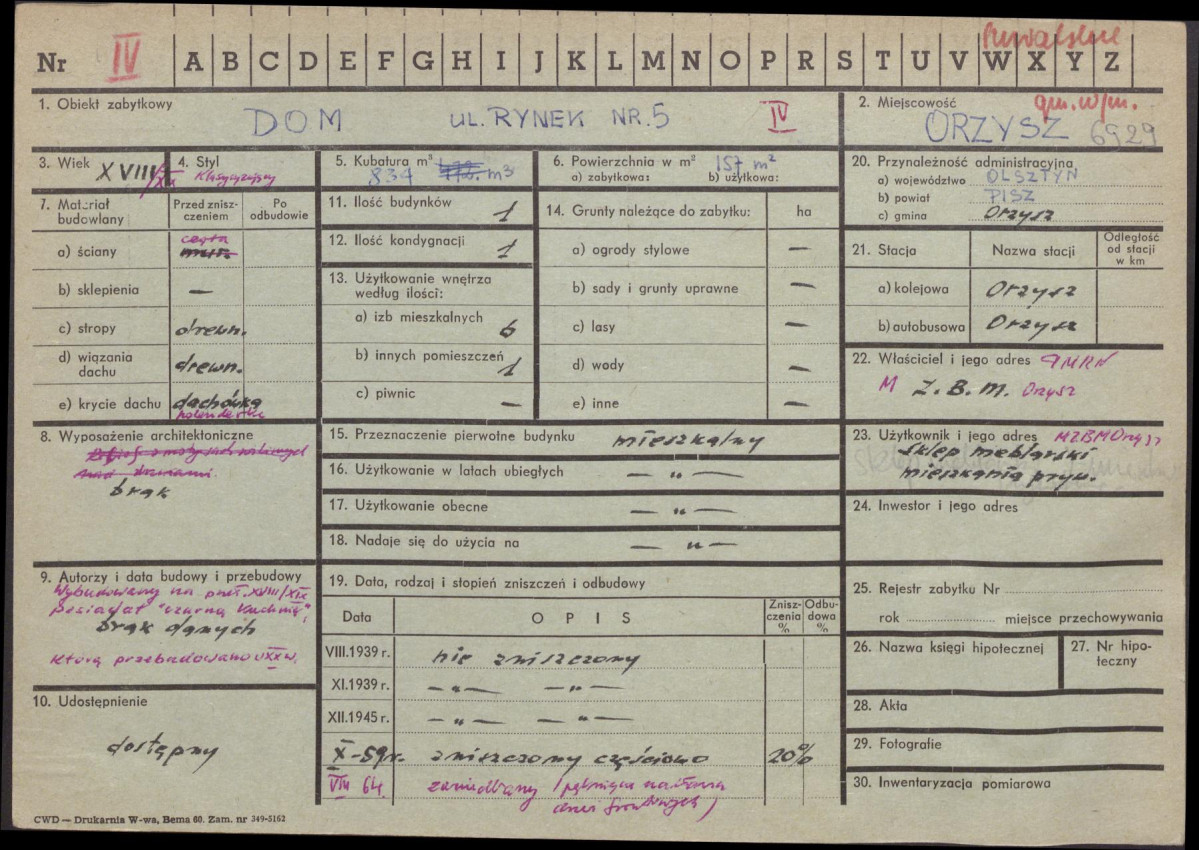 Nr IV A B C D E F G H I J K L M N O P R S T U V W X Y Z
suwalskie
gm. w/m.
1. Obiekt zabytkowy
DOM UL. RYNEK NR. 5 IV
2. Miejscowość
ORZYSZ 6929
3. Wiek XVIII/XX
4. Styl
Klasycyzujący
5. Kubatura m³
834 m3
6. Powierzchnia w m² 157 m²
a) zabytkowa: b) użytkowa:
7. Materiał budowlany
Przed zniszczeniem
Po odbudowie
a) ściany cegła mur.
b) sklepienia —
c) stropy drewn.
d) wiązania dachu drewn.
e) krycie dachu dachówka
holenderska
8. Wyposażenie architektoniczne
nad drzwiami.
brak
9. Autorzy i data budowy i przebudowy
Wybudowany na przeł. XVIII/XIX
posiadał "czarną kuchnię",
brak danych
którą przebudowano w XX w.
10. Udostępnienie
dostępny
11. Ilość budynków 1
12. Ilość kondygnacji 1
13. Użytkowanie wnętrza według ilości:
a) izb mieszkalnych 6
b) innych pomieszczeń 1
c) piwnic —
14. Grunty należące do zabytku: ha
a) ogrody stylowe —
b) sady i grunty uprawne —
c) lasy —
d) wody —
e) inne —
15. Przeznaczenie pierwotne budynku mieszkalny
16. Użytkowanie w latach ubiegłych — " —
17. Użytkowanie obecne — " —
18. Nadaje się do użycia na — " —
19. Data, rodzaj i stopień zniszczeń i odbudowy
Data OPIS Zniszczenia % Odbudowa %
VIII.1939 r. nie zniszczony
XI.1939 r. — " — — " —
XII.1945 r. — " — — " —
X-59r. zniszczony częściowo 20%
VIII 64. zaniedbany (pęknięcia
frontowych)
20. Przynależność administracyjna
a) województwo OLSZTYN
b) powiat PISZ
c) gmina Orzysz
21. Stacja Nazwa stacji Odległość od stacji w km
a) kolejowa Orzysz
b) autobusowa Orzysz
22. Właściciel i jego adres PMRN
M Z.B.M. Orzysz
23. Użytkownik i jego adres MZBM Orzysz
sklep meblarski
mieszkania pryw.
24. Inwestor i jego adres
25. Rejestr zabytku Nr
rok miejsce przechowywania
26. Nazwa księgi hipotecznej
27. Nr hipoteczny
28. Akta
29. Fotografie
30. Inwentaryzacja pomiarowa
CWD — Drukarnia W-wa, Bema 60. Zam. nr 349-5162